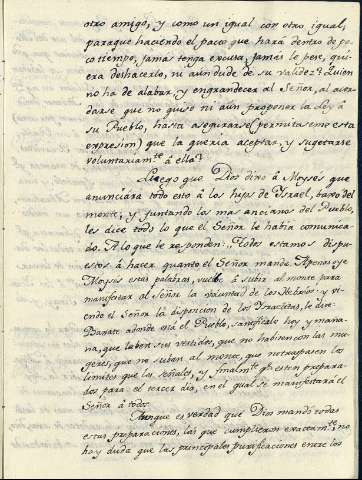 otro amigo, y como un igual con otro igual,
paraque haciendo el pacto que hará dentro de po-
co tiempo, jamas tenga excusa, jamas le pese, qui-
era deshacerlo, ni aun dude de su validez? Quien
no ha de alabar y engrandecer al Señor, al acor-
darse que no quiso ni aun proponer la Ley á
su Pueblo, hasta asegurarse (permitaseme esta
expresion) que la queria aceptar, y sugetarse
voluntariamte á ella?
Luego que Dios dixo á Moyses que
anunciára todo esto á los hijos de Israel, baxo del
monte, y juntando los mas ancianos del Pueblo,
les dice todo lo que el Señor le habia comunica-
do. A lo que le responden: Todos estamos dispu-
estos á hacer quanto el Señor mande. Apenas oye
Moyses estas palabras, vuelve á subir al monte para
manifestar al Señor la voluntad de los Hebréos: y vi-
endo el Señor la disposicion de los Israelitas, le dice:
Baxate adonde está el Pueblo, santificalo hoy y maña-
na, que laben sus vestidos, que no habiten con las mu-
geres, que no suban al monte, que no traspasen los
limites que les señales, y finalmte qe esten prepara-
dos para el tercer dia, en el qual se manifestará el
Señor á todos.
Aunque es verdad que Dios mandó todas
estas preparaciones, las que cumplieron exactamte, no
hay duda que las principales purificaciones entre los